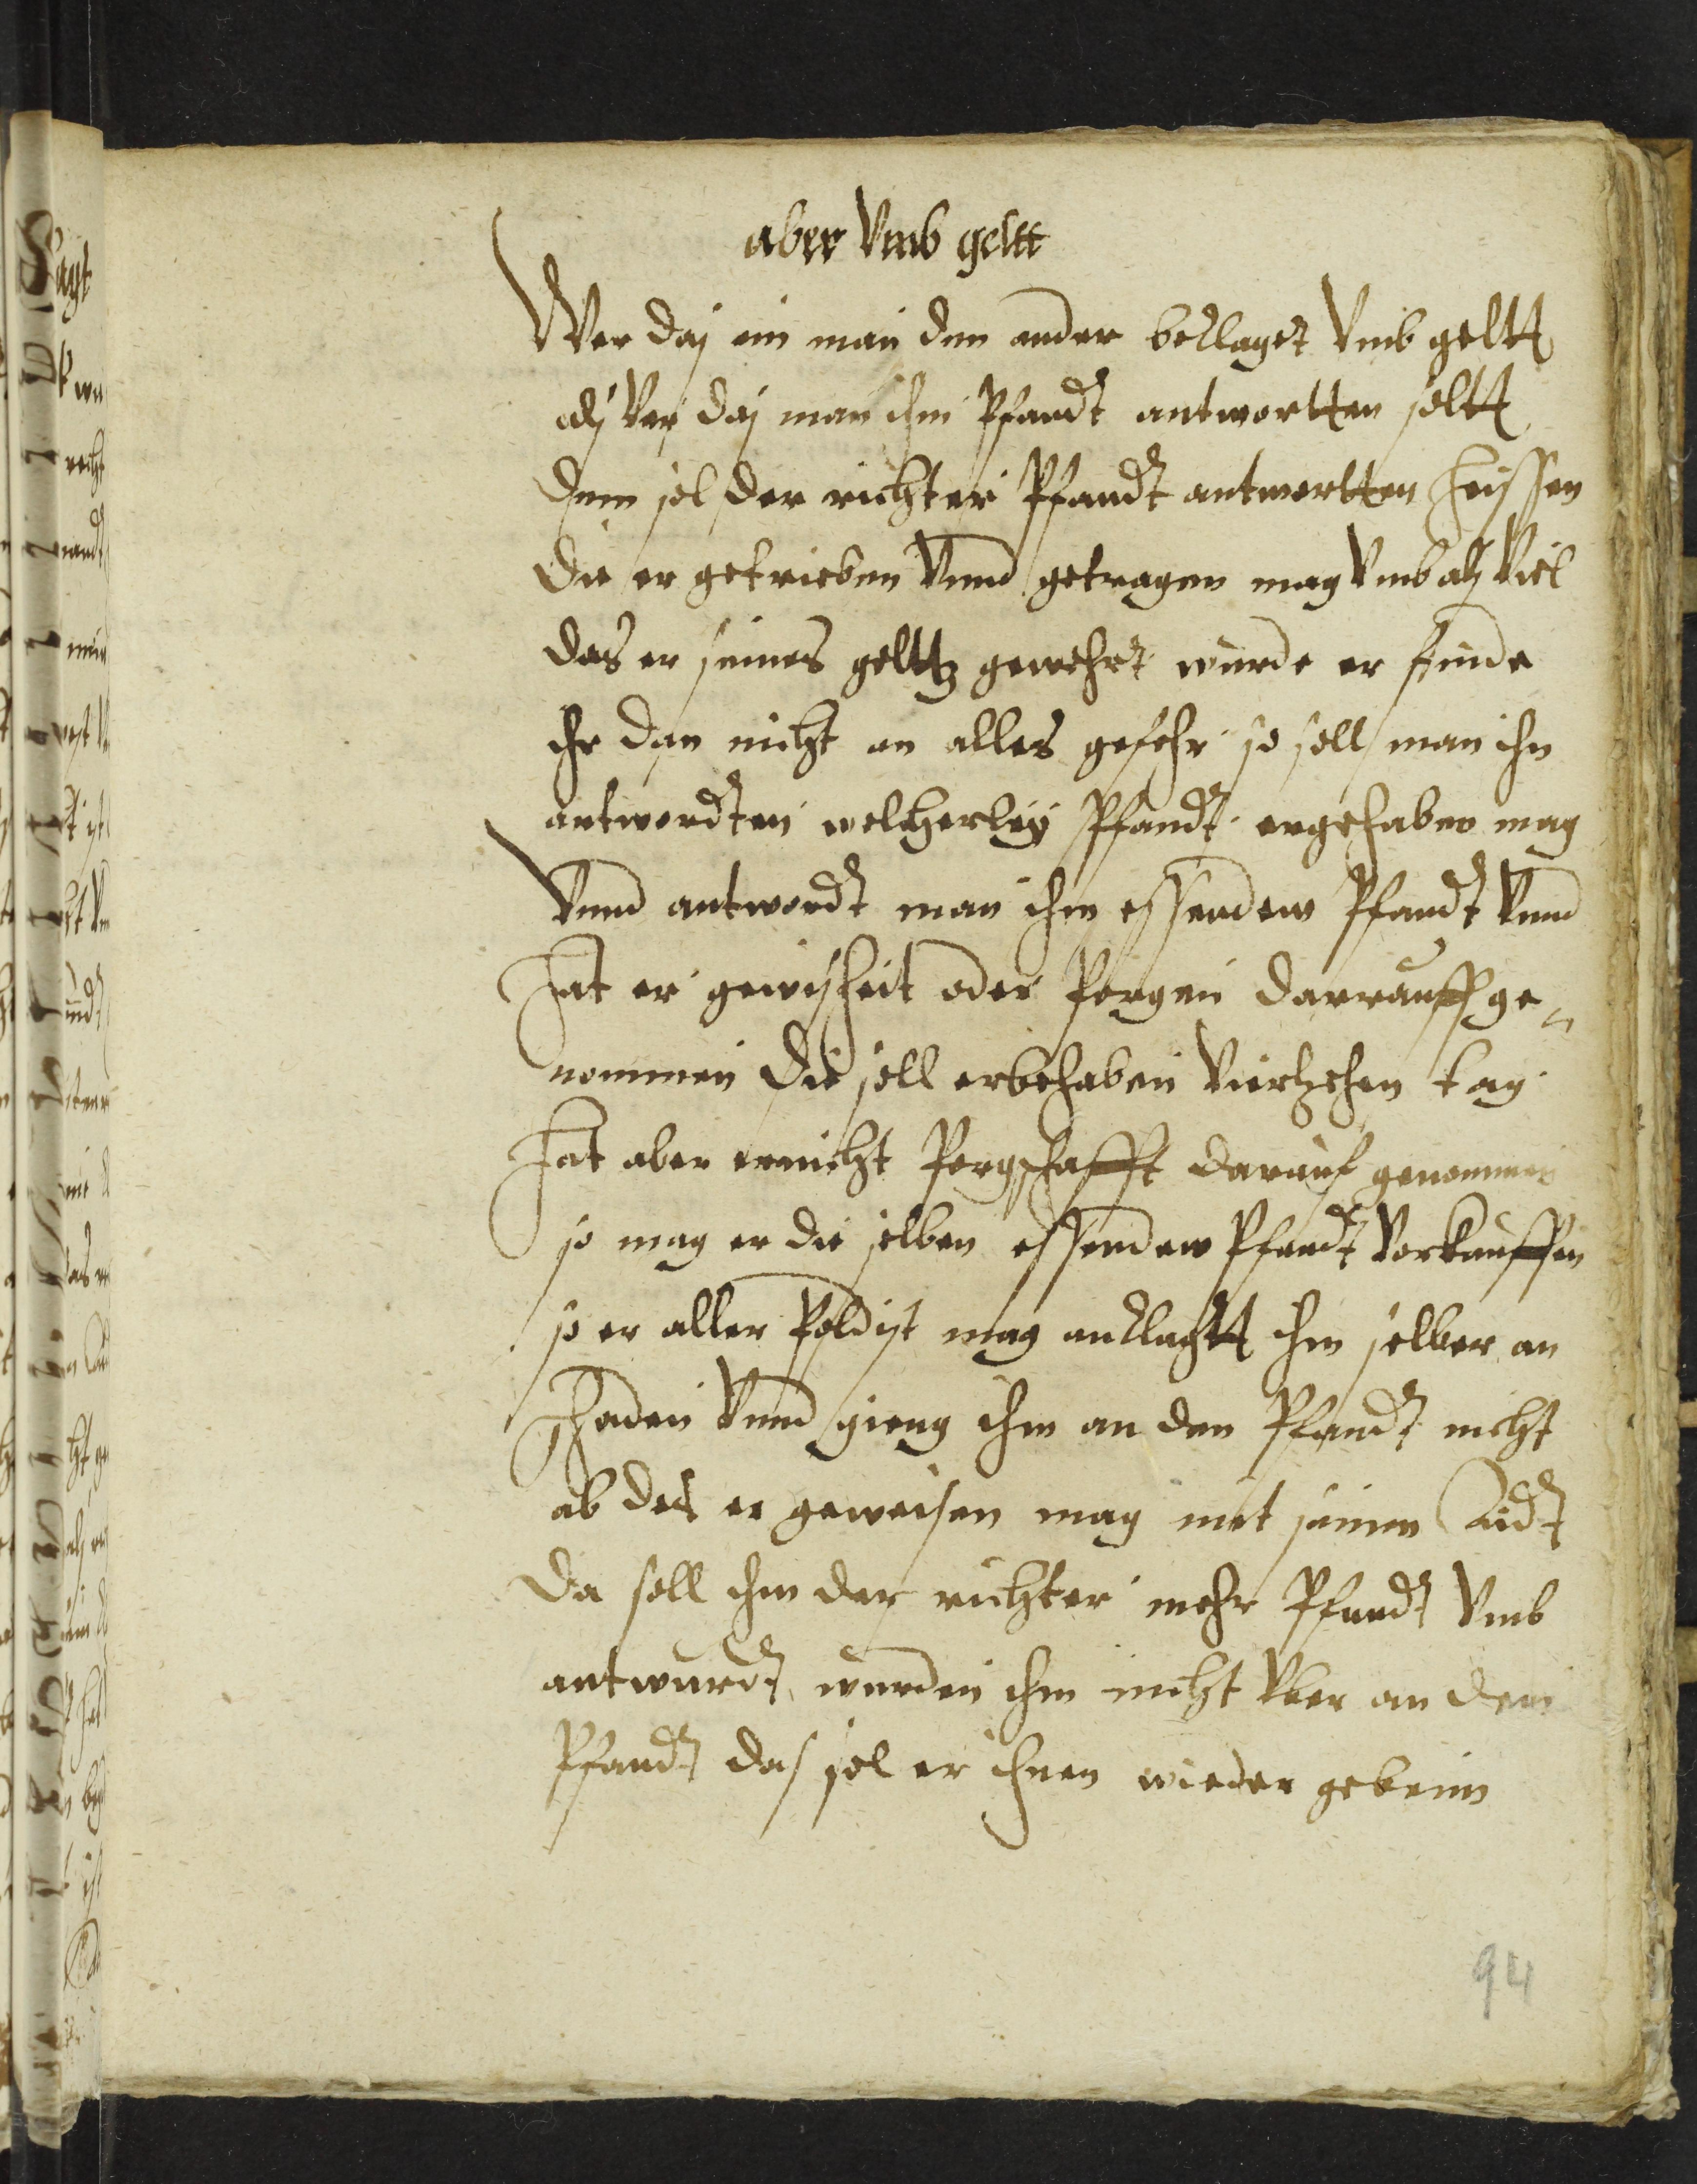 aber Vmb geltt
Wer daß ein man den ander beclaget Vmb geltt
alß Ver daß man ihm Pfandt antwortten soltt
dem sol der richter Pfandt antwortten heissen
die er getrieben Vnnd getragen mag Vmb alß Viel
das er seines geltz gewehrt wurde er finde
ihr dan nicht an alles gefehr so soll man ihn
antwordten welcherley Pfandt ergehaben mag
Vnnd antwordt man ihm essenden Pfandt Vnnd
Hat er gewisheit oder Porgen darrauff ge„
nommen die soll erbehaben Vierzehen tag
Hat aber ernicht Porgschafft darauf genommen
so mag er die selben essenden Pfandt Vorkauffen
so er aller Poldist mag anclagtt ihm selber an
schaden Vnnd gieng ihm an den Pfandt nicht
ab des er geweisen mag mit seinem Aidt
da soll ihm der richter mehr Pfandt Vmb
antwurdt wurden ihm nicht Vber an dem
Pfandt das sol er ihnen wieder gebenn
94